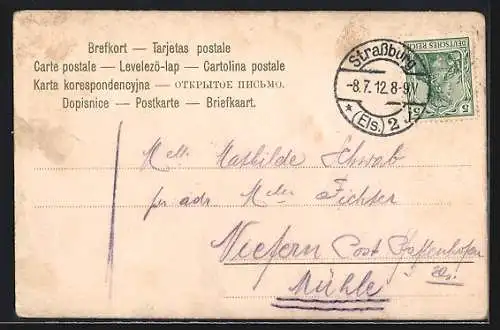 Brefkort — Tarjetas postale
Carte postale — Levelező-lap — Cartolina postale
Karta korespondencyjna — ОТКРЫТОЕ ПИСЬМО.
Dopisnice — Postkarte — Briefkaart.
Straßburg
-8.7.12.8-9V
* (Els.) 2
DEUTSCHES REICH
5 5
Melle Mathilde Schwab
per adr. Meter Fichter
Niefern Post Pfaffenhofen
Els.
Mühle